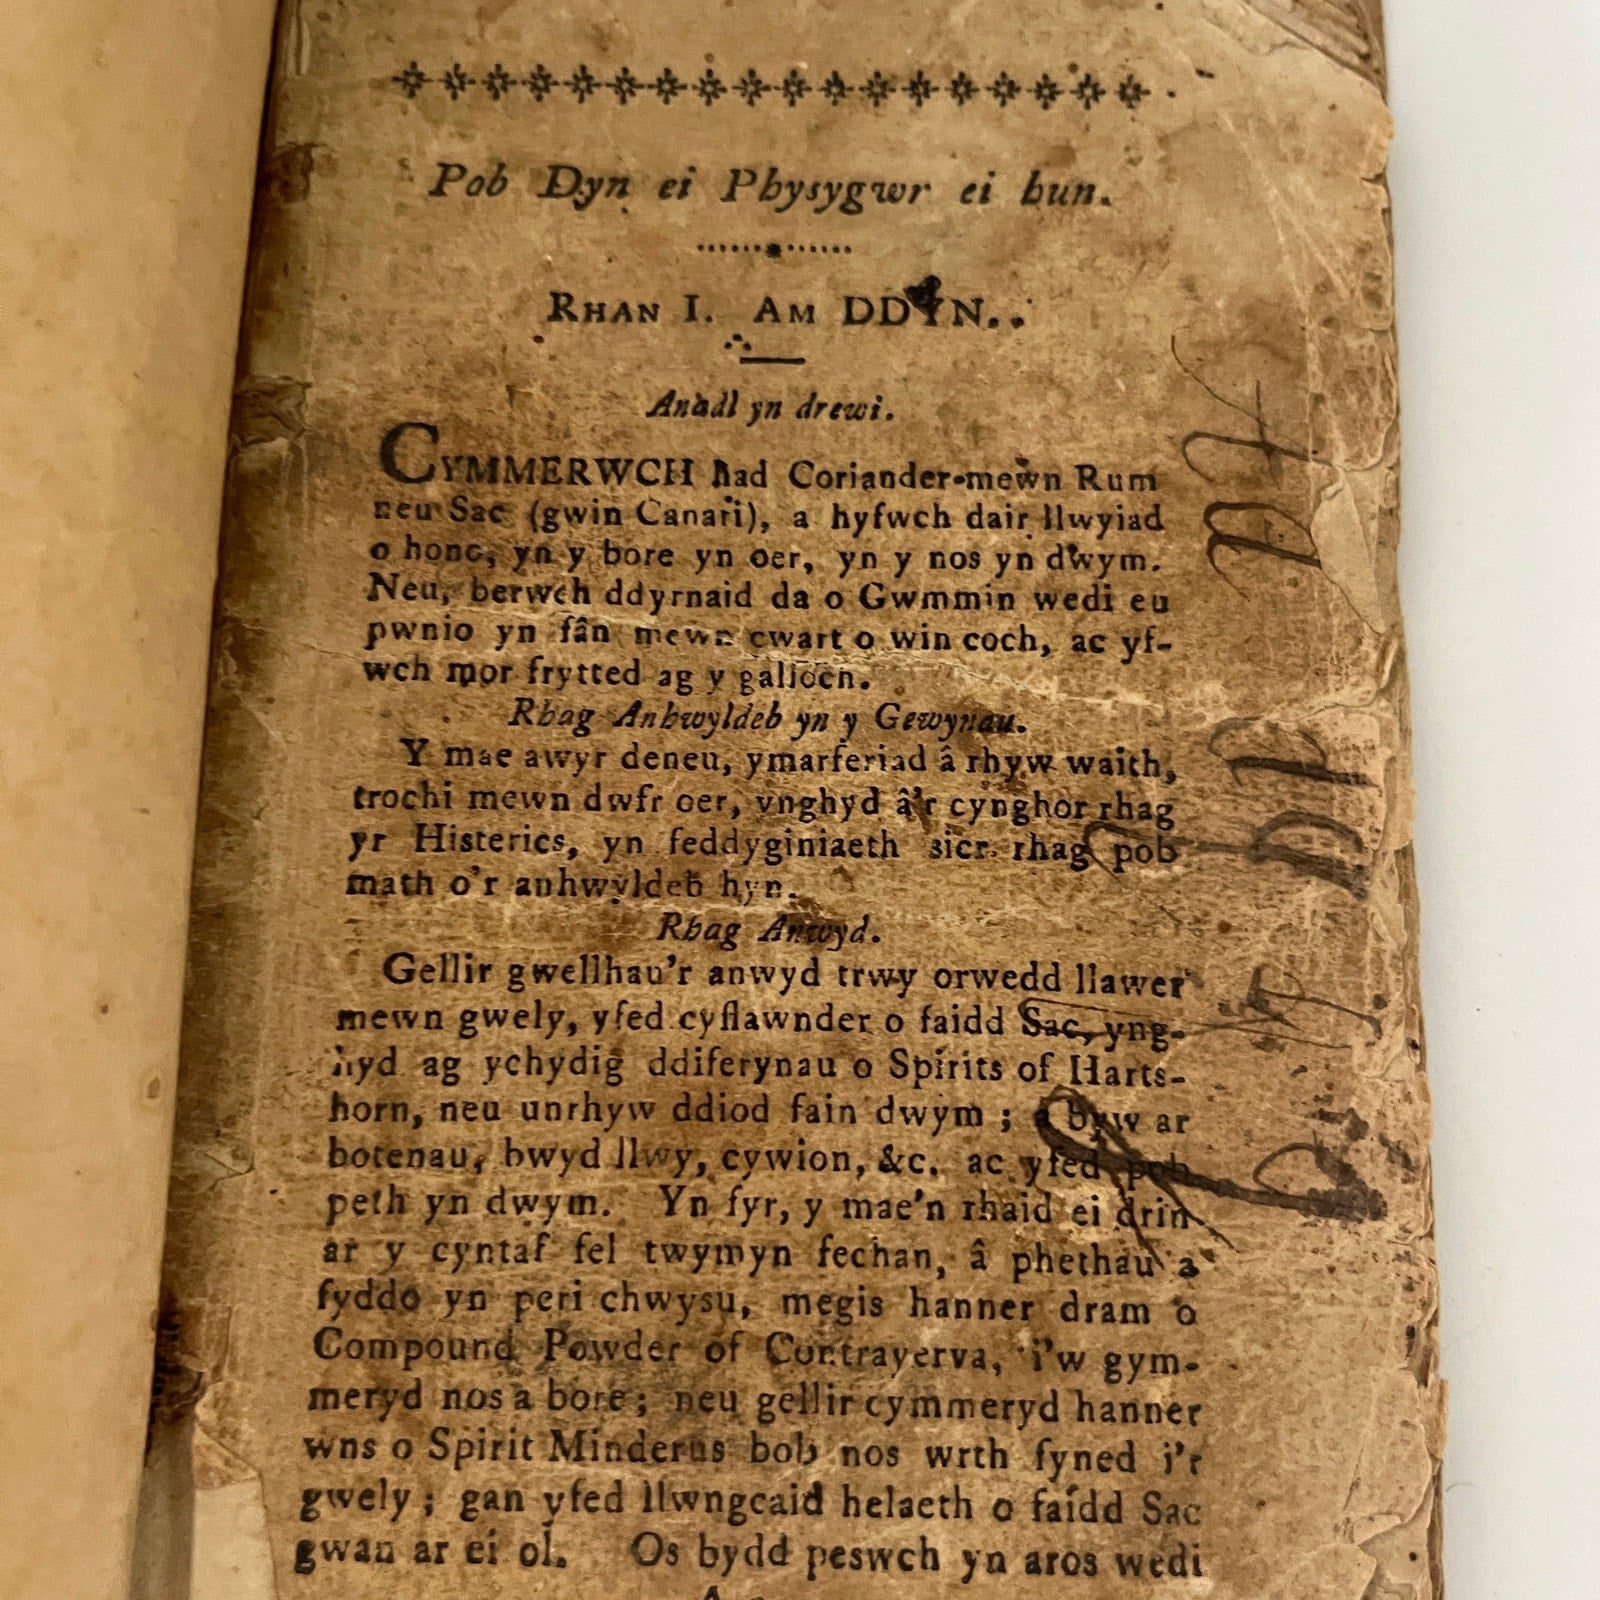 Pob Dyn ei Physygwr ei hun.
RHAN I. AM DDYN.
Anadl yn drewi.
CYMMERWCH had Coriander mewn Rum
neu Sac (gwin Canari), a hyfwch dair llwyiad
o hono, yn y bore yn oer, yn y nos yn dwym.
Neu, berwch ddyrnaid da o Gwmmin wedi eu
pwnio yn fân mewn cwart o win coch, ac yf-
wch mor frytted ag y galloch.
Rhag Anhwyldeb yn y Gewynau.
Y mae awyr deneu, ymarferiad â rhyw waith,
trochi mewn dwfr oer, ynghyd â'r cynghor rhag
yr Histerics, yn feddyginiaeth sicr rhag pob
math o'r anhwyldeb hyn.
Rhag Anwyd.
Gellir gwellhau'r anwyd trwy orwedd llawer
mewn gwely, yfed cyflawnder o faidd Sac, yng-
hyd ag ychydig ddiferynau o Spirits of Harts-
horn, neu unrhyw ddiod fain dwym; a byw ar
botenau, bwyd llwy, cywion, &c. ac yfed pob
peth yn dwym. Yn fyr, y mae'n rhaid ei drin
ar y cyntaf fel twymyn fechan, â phethau a
fyddo yn peri chwysu, megis hanner dram o
Compound Powder of Contrayerva, i'w gym-
meryd nos a bore; neu gellir cymmeryd hanner
wns o Spirit Minderus bob nos wrth fyned i'r
gwely; gan yfed llwngcaid helaeth o faidd Sac
gwan ar ei ol. Os bydd peswch yn aros wedi